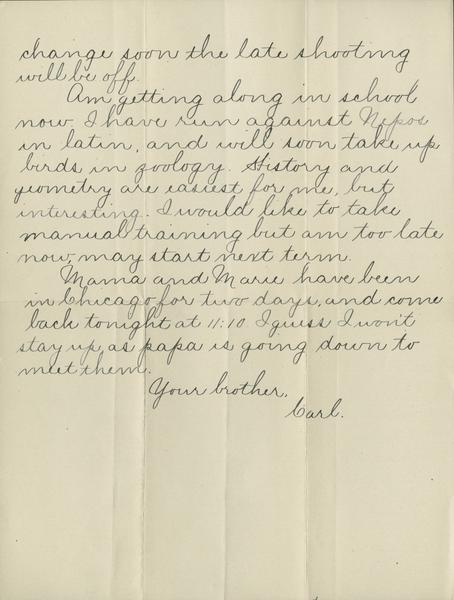 change soon the late shooting
will be off.
Am getting along in school
now. I have run against Nepos
in latin, and will soon take up
birds in zoology. History and
geometry are easiest for me, but
interesting. I would like to take
manual training but am too late
now, may start next term.
Mama and Marie have been
in Chicago for two days, and come
back tonight at 11:10. I guess I won't
stay up, as papa is going down to
meet them.
Your brother,
Carl.